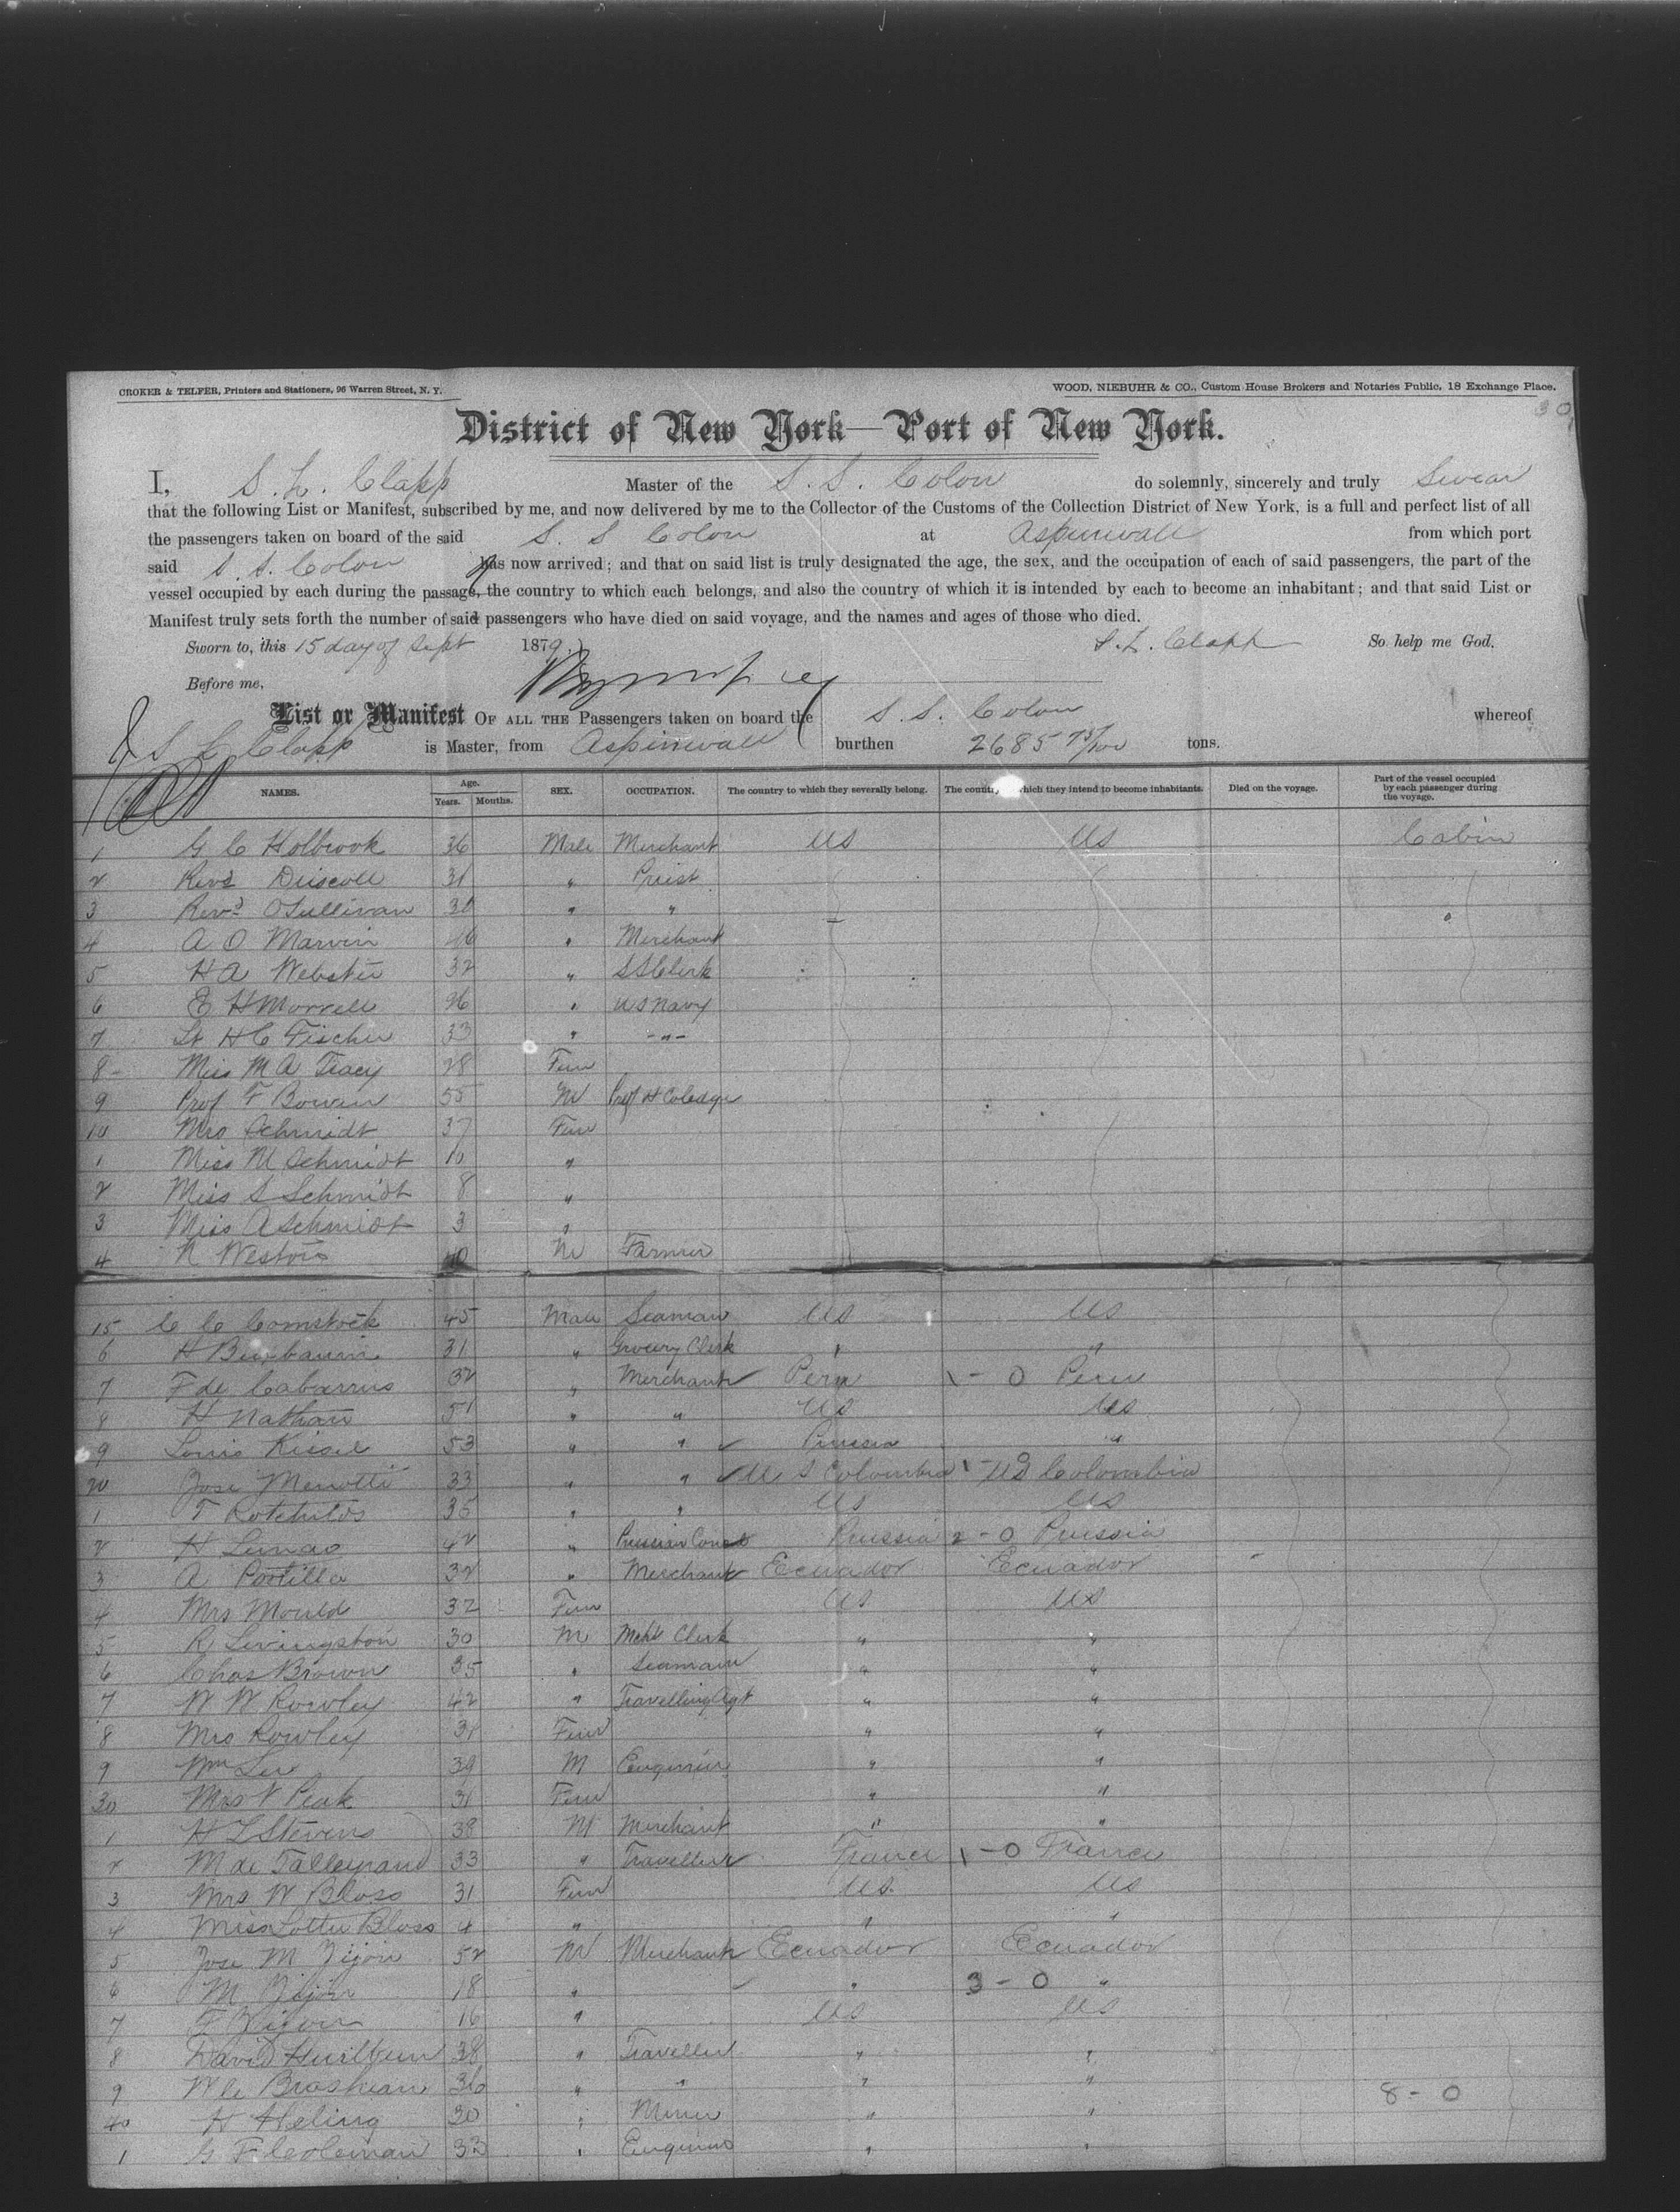 CROKER & TELFER, Printers and Stationers, 96 Warren Street, N. Y.
WOOD, NIEBUHR & CO., Custom House Brokers and Notaries Public, 18 Exchange Place.
30
District of New York—Port of New York.
I, S. L. Clapp Master of the S. S. Colon do solemnly, sincerely and truly Swear
that the following List or Manifest, subscribed by me, and now delivered by me to the Collector of the Customs of the Collection District of New York, is a full and perfect list of all
the passengers taken on board of the said S. S Colon at Aspinwall from which port
said S. S. Colon has now arrived; and that on said list is truly designated the age, the sex, and the occupation of each of said passengers, the part of the
vessel occupied by each during the passage, the country to which each belongs, and also the country of which it is intended by each to become an inhabitant; and that said List or
Manifest truly sets forth the number of said passengers who have died on said voyage, and the names and ages of those who died.
Sworn to, this 15 day of Sept 1879. S. L. Clapp So help me God.
Before me,
List or Manifest OF ALL THE Passengers taken on board the S. S. Colon whereof
S L Clapp is Master, from Aspinwall burthen 2685 75/100 tons.
NAMES. Age. Years. Months. SEX. OCCUPATION. The country to which they severally belong. The country which they intend to become inhabitants. Died on the voyage. Part of the vessel occupied by each passenger during the voyage.
1 G C Holbrook 36 Male Merchant US US Cabin
2 Revd Driscoll 31 " Priest
3 Revd O'Sullivan 30 " " "
4 A O Marvin 46 " Merchant
5 H A Webster 32 " SS Clerk
6 E H Morrell 26 " US Navy
7 Lt H C Fischer 33 " -"-
8 Miss M A Tracy 28 Fem
9 Prof F Bowen 55 M Prof H Coledge
10 Mrs Schmidt 37 Fem
1 Miss M Schmidt 10 "
2 Miss S Schmidt 8 "
3 Miss A Schmidt 3 "
4 N Weston 40 M Farmer
15 C C Comstock 45 Male Seaman US US
6 H Buxbaum 31 " Grocery Clerk " "
7 F de Cabarrus 32 " Merchant Peru 1 - 0 Peru
8 H Nathan 51 " " US US
9 Louis Kissel 53 " " Prussia "
20 Jose Menotti 33 " " U S Colombia 1 - 0 US Colombia
1 T Rotchilds 35 " " US US
2 H Lunao 42 " Prussian Consl Prussia 2 - 0 Prussia
3 A Portilla 32 " Merchant Ecuador Ecuador
4 Mrs Mould 32 Fem US US
5 R Livingston 30 M Clerk " "
6 Chas Brown 35 " Seaman " "
7 W W Rowley 42 " Travelling Agt " "
8 Mrs Rowley 31 Fem " "
9 Wm Lee 39 M Engineer " "
30 Mrs V Peak 31 Fem " "
1 H L Stevens 38 M Merchant " "
2 M de Talleyrand 33 " Traveller France 1 - 0 France
3 Mrs W Bloss 31 Fem US US
4 Miss Lottie Bloss 4 " " "
5 Jose M Jijon 52 M Merchant Ecuador Ecuador
6 M Jijon 18 " " 3 - 0 "
7 F Jijon 16 " US US
8 David Hurlburn 38 " Traveller " "
9 W C Brashear 36 " " " "
8 - 0
40 H Heling 30 " Miner " "
1 G F Coleman 33 " Engineer " "